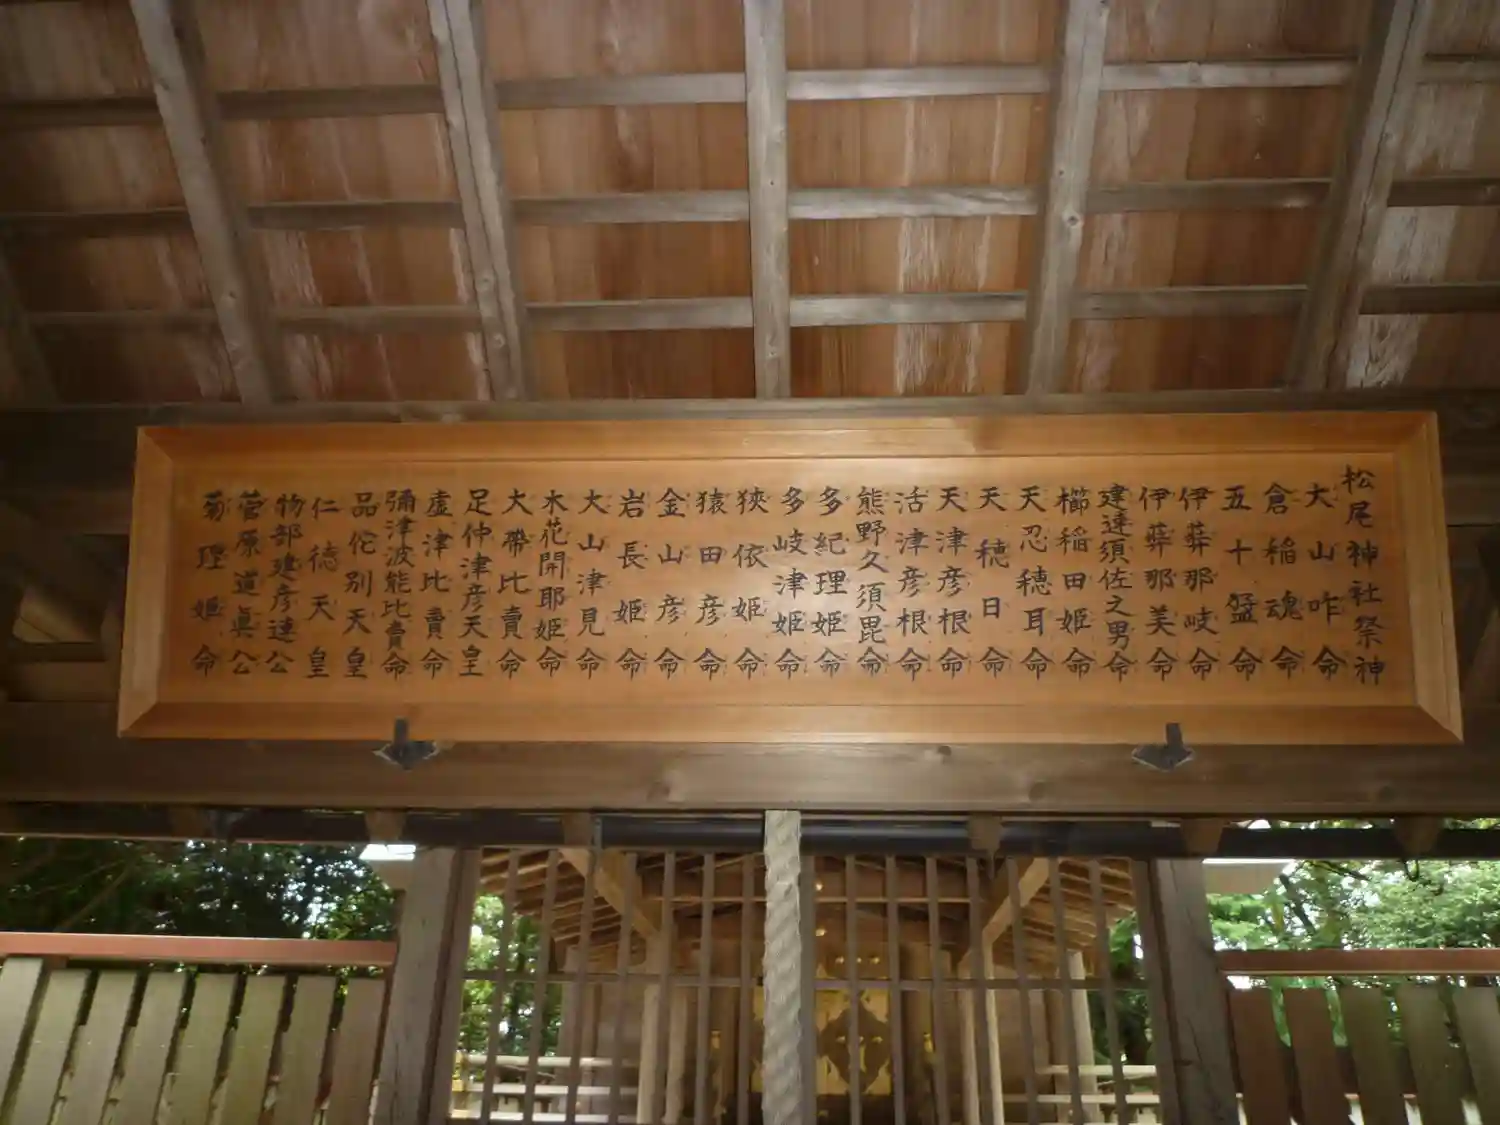 松尾神社祭神
大山咋命
倉稲魂命
五十猛命
伊弉那岐命
伊弉那美命
建速須佐之男命
櫛稲田姫命
天忍穂耳命
天穂日命
天津彦根命
活津彦根命
熊野久須毘命
多紀理姫命
多岐津姫命
狹依姫命
猿田彦命
金山彦命
岩長姫命
大山津見命
木花開耶姫命
大帶比賣命
足仲津彦天皇
虚津比賣命
彌津波能比賣命
品佗別天皇
仁徳天皇
物部建彦連公
菅原道眞公
菊理姫命